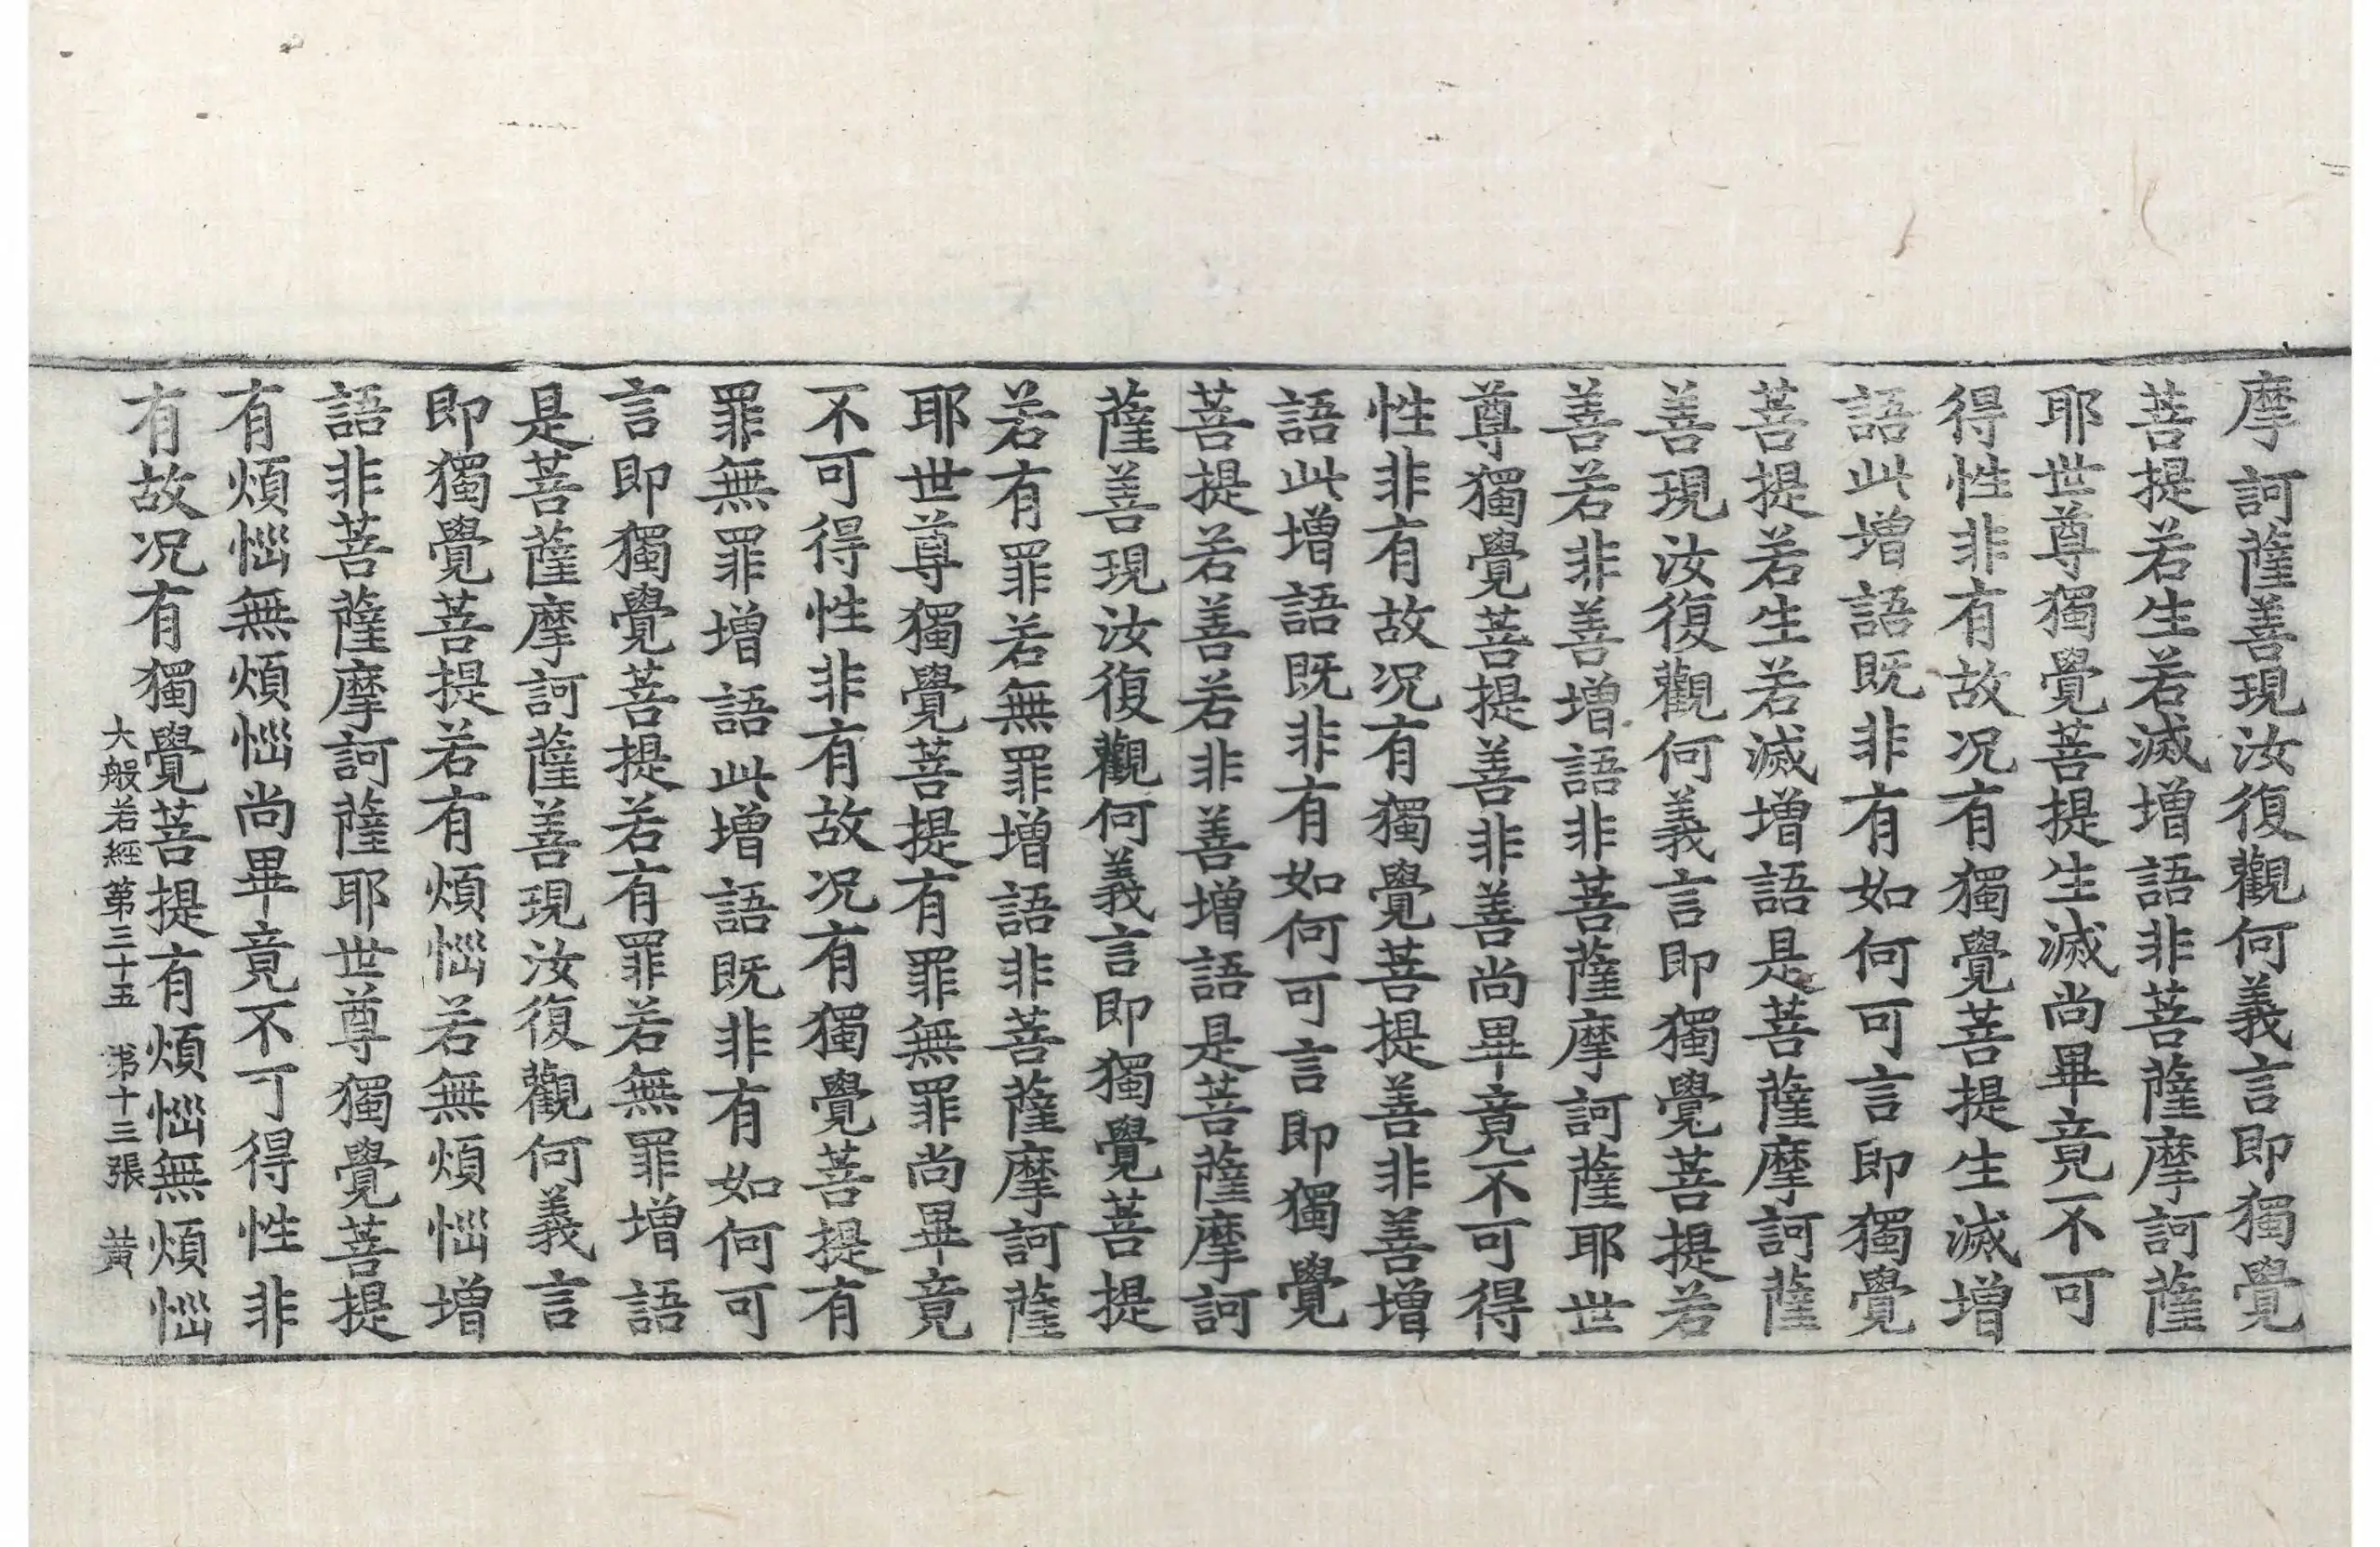 摩訶薩善現汝復觀何義言即獨覺
菩提若生若滅增語非菩薩摩訶薩
耶世尊獨覺菩提生滅尚畢竟不可
得性非有故况有獨覺菩提生滅增
語此增語既非有如何可言即獨覺
菩提若生若滅增語是菩薩摩訶薩
善現汝復觀何義言即獨覺菩提若
善若非善增語非菩薩摩訶薩耶世
尊獨覺菩提善非善尚畢竟不可得
性非有故况有獨覺菩提善非善增
語此增語既非有如何可言即獨覺
菩提若善若非善增語是菩薩摩訶
薩善現汝復觀何義言即獨覺菩提
若有罪若無罪增語非菩薩摩訶薩
耶世尊獨覺菩提有罪無罪尚畢竟
不可得性非有故况有獨覺菩提有
罪無罪增語此增語既非有如何可
言即獨覺菩提若有罪若無罪增語
是菩薩摩訶薩善現汝復觀何義言
即獨覺菩提若有煩惱若無煩惱增
語非菩薩摩訶薩耶世尊獨覺菩提
有煩惱無煩惱尚畢竟不可得性非
有故况有獨覺菩提有煩惱無煩惱
大般若經第三十五 第十三張 黃